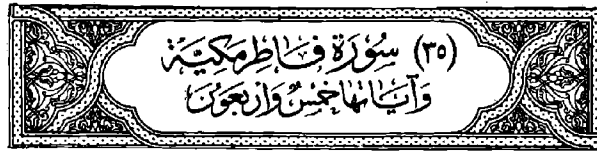 (٣٥) سُورَة فَاطِر مَكِيَّة
وَآيَاتُهَا خَمْسٌ وَأَرْبَعُونَ